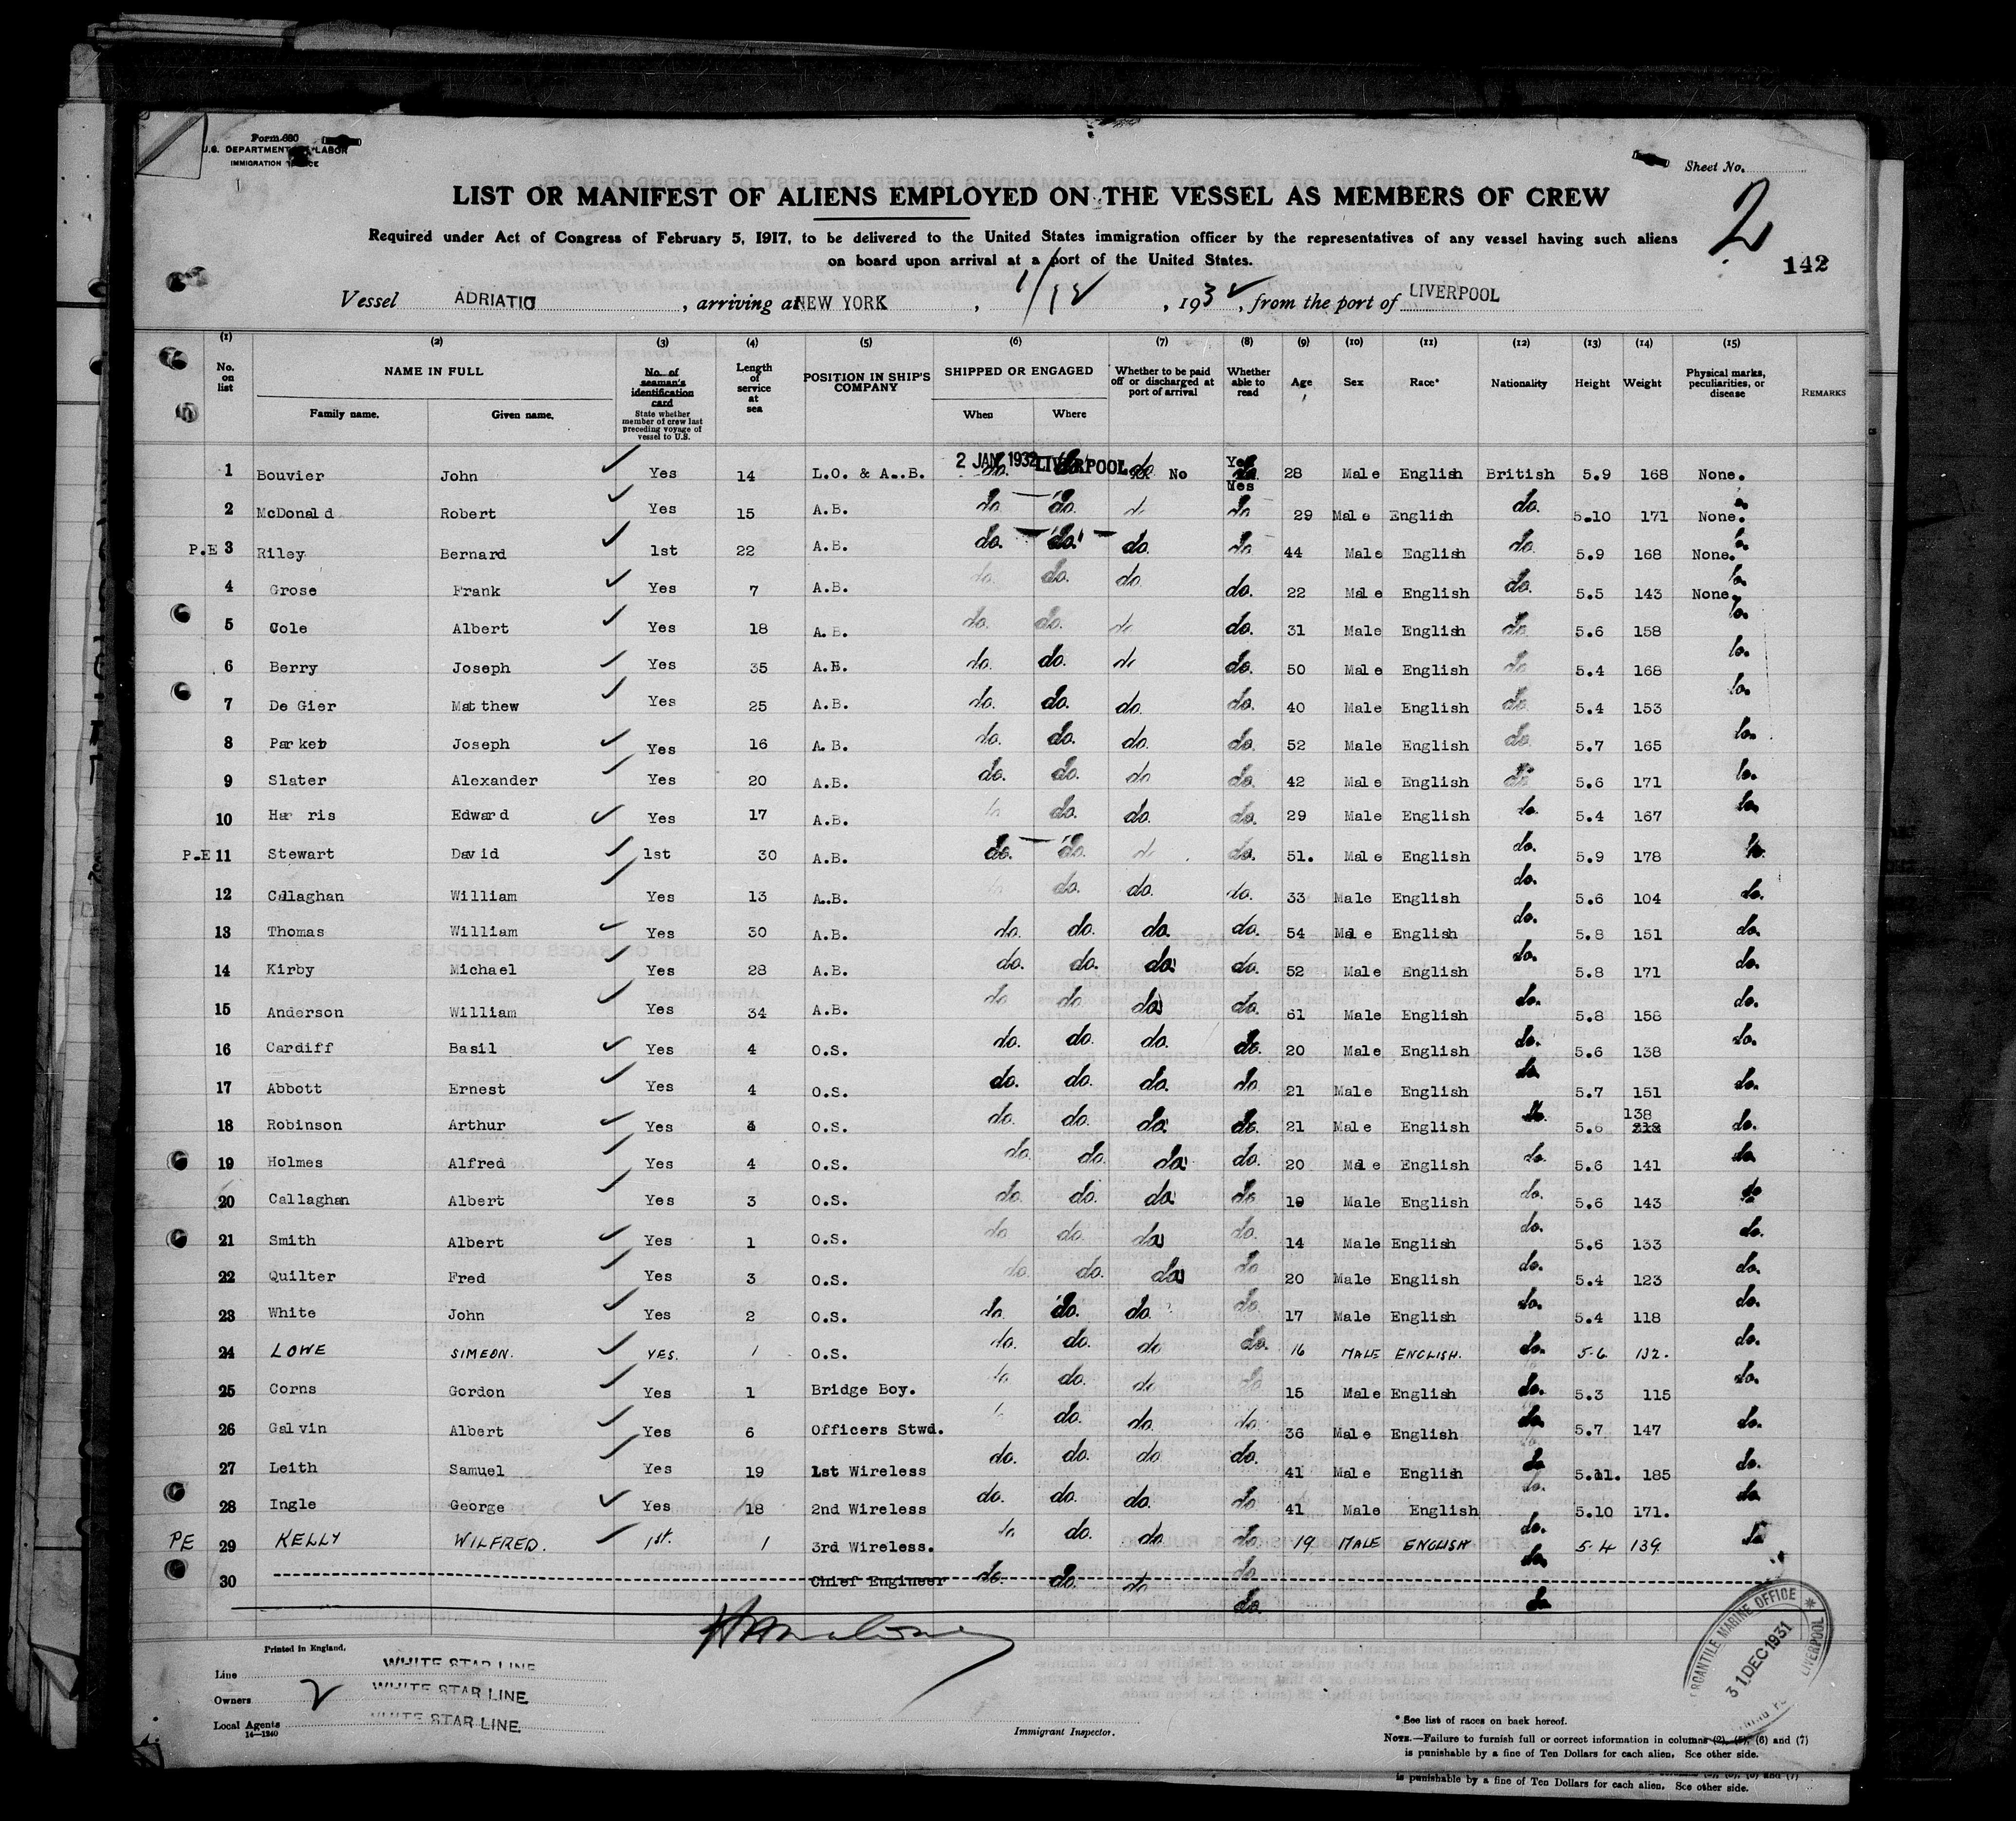 Form 680
U.S. DEPARTMENT OF LABOR
IMMIGRATION SERVICE
Sheet No.
2
142
LIST OR MANIFEST OF ALIENS EMPLOYED ON THE VESSEL AS MEMBERS OF CREW
Required under Act of Congress of February 5, 1917, to be delivered to the United States immigration officer by the representatives of any vessel having such aliens
on board upon arrival at a port of the United States.
Vessel ADRIATIC, arriving at NEW YORK, 1/12, 1932, from the port of LIVERPOOL
(1) (2) (3) (4) (5) (6) (7) (8) (9) (10) (11) (12) (13) (14) (15)
No. on list NAME IN FULL Family name. Given name. No. of seaman's identification card State whether member of crew last preceding voyage of vessel to U.S. Length of service at sea POSITION IN SHIP'S COMPANY SHIPPED OR ENGAGED When Where Whether to be paid off or discharged at port of arrival Whether able to read Age Sex Race* Nationality Height Weight Physical marks, peculiarities, or disease REMARKS
1 Bouvier John Yes 14 L.O. & A.B. 2 JAN 1932 LIVERPOOL No Yes 28 Male English British 5.9 168 None.
2 McDonald Robert Yes 15 A.B. do. do. do do 29 Male English do. 5.10 171 None.
P.E 3 Riley Bernard 1st 22 A.B. do. do. do. do 44 Male English do. 5.9 168 None.
4 Grose Frank Yes 7 A.B. do. do. do. do. 22 Male English do. 5.5 143 None.
5 Cole Albert Yes 18 A.B. do. do. do do. 31 Male English do 5.6 158 do.
6 Berry Joseph Yes 35 A.B. do. do. do do. 50 Male English do 5.4 168 do.
7 De Gier Matthew Yes 25 A.B. do. do. do. do. 40 Male English do 5.4 153 do.
8 Parker Joseph Yes 16 A.B. do. do. do. do. 52 Male English do 5.7 165 do.
9 Slater Alexander Yes 20 A.B. do. do. do do. 42 Male English do 5.6 171 do.
10 Harris Edward Yes 17 A.B. do do. do. do. 29 Male English do. 5.4 167 do.
P.E 11 Stewart David 1st 30 A.B. do. do. do do. 51. Male English do. 5.9 178 do.
12 Callaghan William Yes 13 A.B. do do. do. do. 33 Male English do. 5.6 104 do.
13 Thomas William Yes 30 A.B. do. do. do. do. 54 Male English do. 5.8 151 do.
14 Kirby Michael Yes 28 A.B. do. do. do. do. 52 Male English do. 5.8 171 do.
15 Anderson William Yes 34 A.B. do do do. do. 61 Male English do. 5.8 158 do.
16 Cardiff Basil Yes 4 O.S. do. do. do. do. 20 Male English do. 5.6 138 do.
17 Abbott Ernest Yes 4 O.S. do. do. do. do 21 Male English do 5.7 151 do.
18 Robinson Arthur Yes 4 O.S. do. do. do. do. 21 Male English do. 5.6 138 do.
19 Holmes Alfred Yes 4 O.S. do. do. do. do. 20 Male English do. 5.6 141 do
20 Callaghan Albert Yes 3 O.S. do. do. do. do 19 Male English do. 5.6 143 do
21 Smith Albert Yes 1 O.S. do. do. do. do. 14 Male English do. 5.6 133 do.
22 Quilter Fred Yes 3 O.S. do. do. do. do 20 Male English do. 5.4 123 do.
23 White John Yes 2 O.S. do. do. do. do. 17 Male English do. 5.4 118 do.
24 LOWE SIMEON. YES. 1 O.S. do. do. do do. 16 MALE ENGLISH. do. 5.6 132. do.
25 Corns Gordon Yes 1 Bridge Boy. do do. do do 15 Male English do. 5.3 115 do.
26 Galvin Albert Yes 6 Officers Stwd. do. do. do 36 Male English do 5.7 147 do.
27 Leith Samuel Yes 19 1st Wireless do. do. do do. 41 Male English do 5.11. 185 do.
28 Ingle George Yes 18 2nd Wireless do. do. do. do. 41 Male English do. 5.10 171. do
PE 29 KELLY WILFRED. 1st. 1 3rd Wireless. do do. do. do. 19 MALE ENGLISH do. 5.4 139 do
30 Chief Engineer do. do. do do do
do. do
Printed in England.
Line WHITE STAR LINE
Owners WHITE STAR LINE
Local Agents WHITE STAR LINE
14-1240
2
Immigrant Inspector.
MERCANTILE MARINE OFFICE LIVERPOOL
31 DEC 1931
* See list of races on back hereof.
NOTE.—Failure to furnish full or correct information in columns (2), (5), (6) and (7)
is punishable by a fine of Ten Dollars for each alien. See other side.
is punishable by a fine of Ten Dollars for each alien. See other side.